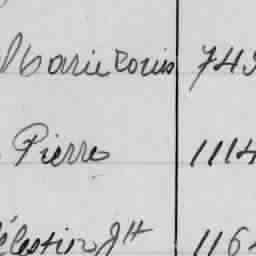 Marie Louis 749
Pierre 1114
élestin Jh 116